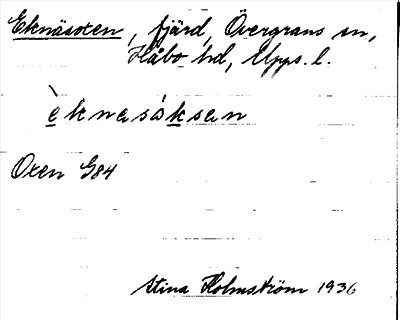 Eknäsoxen, fjärd, Övergrans sn,
Håbo hd, Upps. l.
èknasóksen
Oxen G84
Stina Holmström 1936